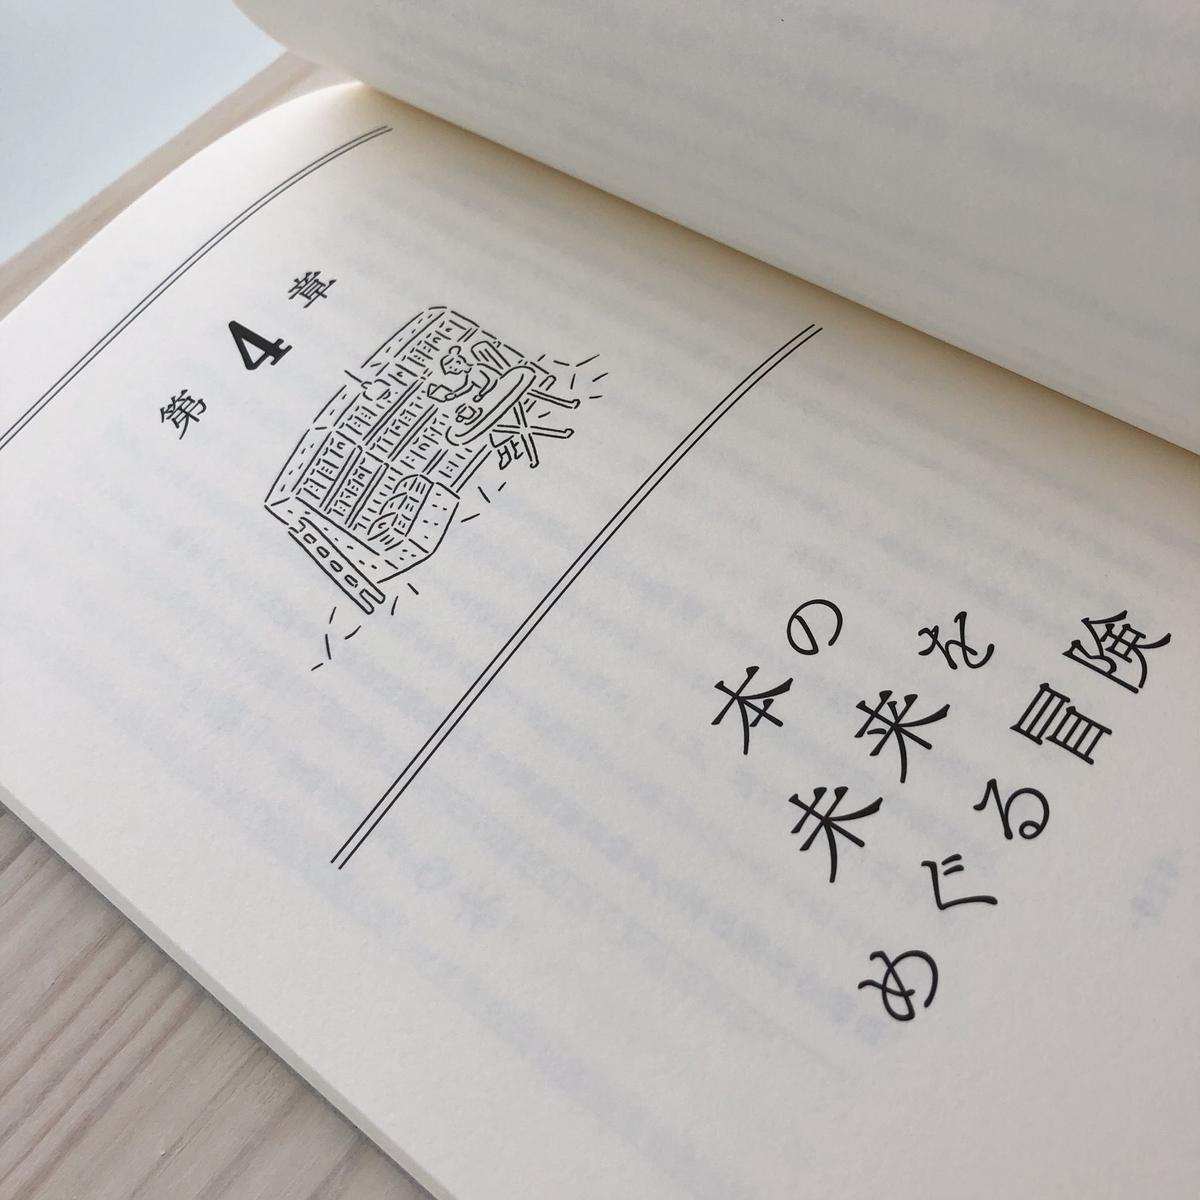 第4章
本の
未来を
めぐる冒険